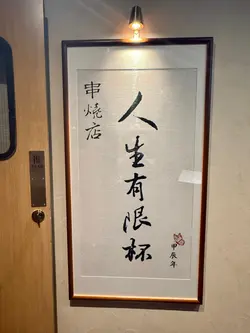 串燒店
人生有限杯
甲辰年
推